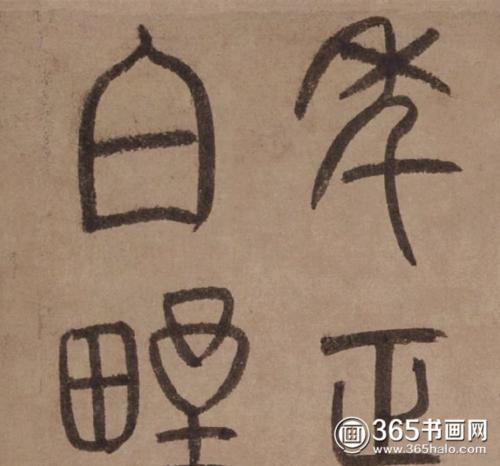 年正
白野
365书画网
www.365halo.com